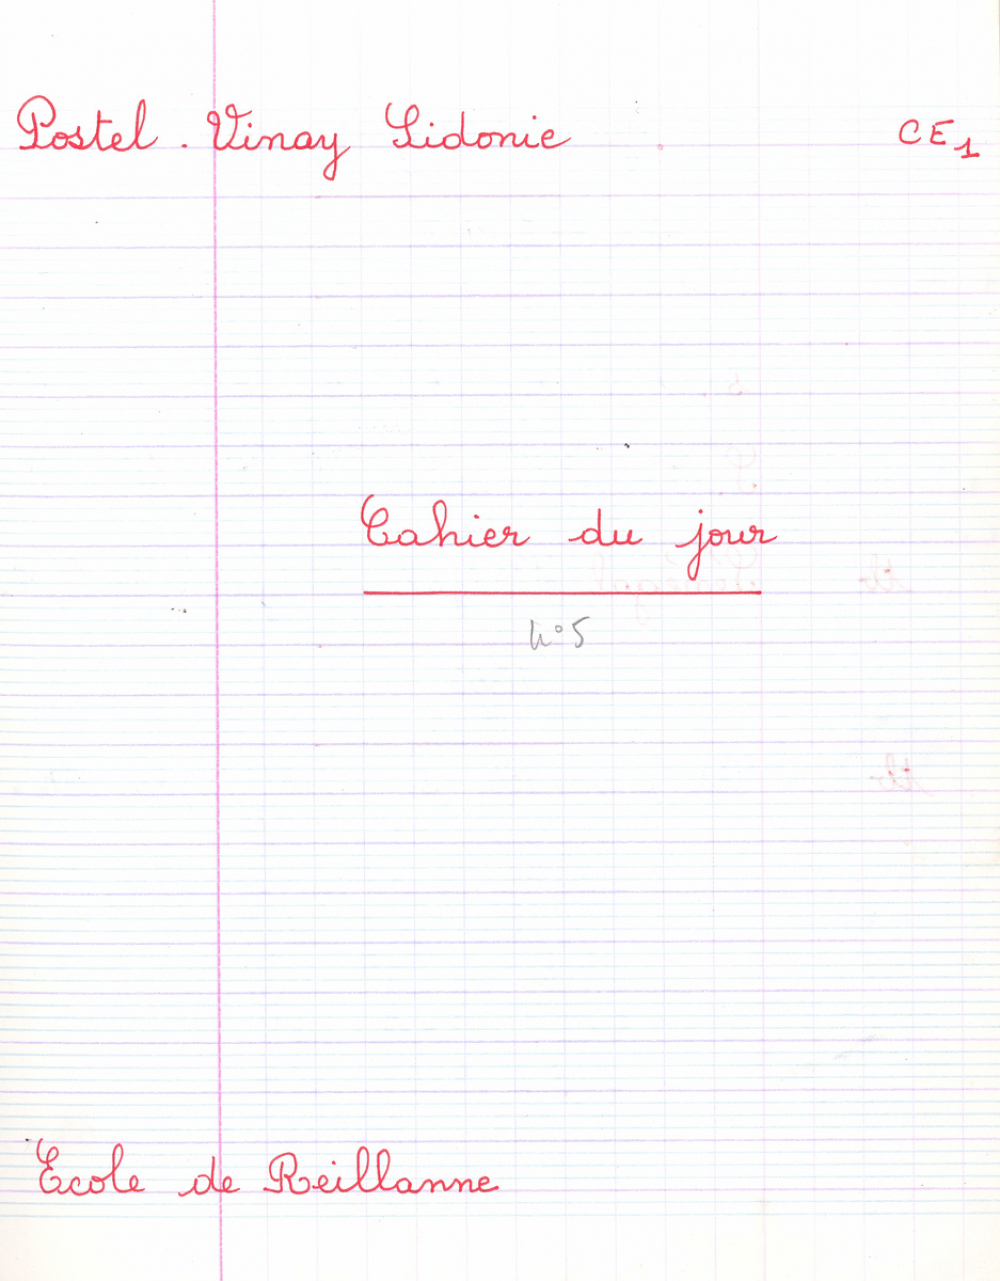 Postel. Vinay Sidonie CE1
Cahier du jour
n°5
Ecole de Reillanne